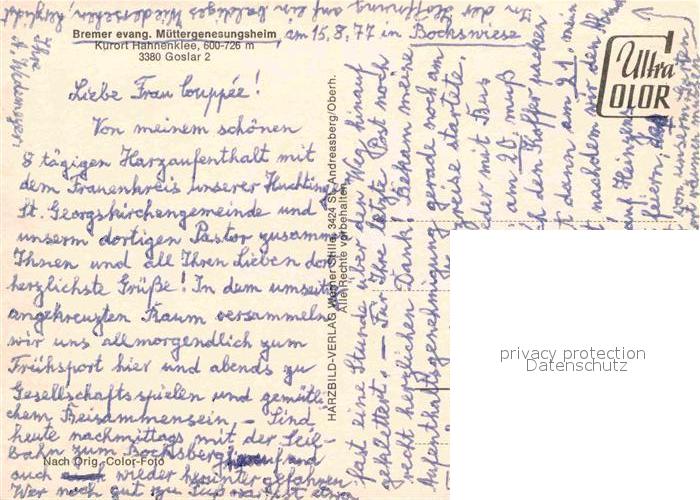 In der Hoffnung auf ein baldiges Wiedersehen, herzlichst
Ihre
Bremer evang. Müttergenesungsheim am 15.8.77 in Bockswiese
Kurort Hahnenklee, 600-726 m
3380 Goslar 2
Liebe Frau Couppée!
Von meinem schönen
8 tägigen Harzaufenthalt mit
dem Frauenkreis unserer Huchting.
St. Georgskirchengemeinde und
unserm dortigen Pastor zusamm.
Ihnen und all Ihren Lieben dort
herzlichste Grüße! In dem umseitig
angekreuzten Raum versammeln
wir uns allmorgendlich zum
Frühsport hier und abends zu
Gesellschaftsspielen und gemütli-
chem Beisammensein – Sind
heute nachmittags mit der Seil-
bahn zum Bocksberg und
auch wieder heruntergefahren
Wer noch gut zu Fuß war, ist etwa
Nach Orig.-Color-Foto
HARZBILD-VERLAG Werner Stille, 3424 St. Andreasberg/Oberh.
Alle Rechte vorbehalten
fast eine Stunde über den Weg hinauf
geklettert. – Für Ihre letzte Post noch
recht herzlichen Dank! Bekam meine
Aufenthaltsgenehmigung gerade noch am
reise startete.
eder mit Bus
am 20. muß
ich den Koffer packen
dann am 21. mein
nachdem wir den
auf Heinzens
feiern,
von unserm
Ultra
COLOR
privacy protection
Datenschutz